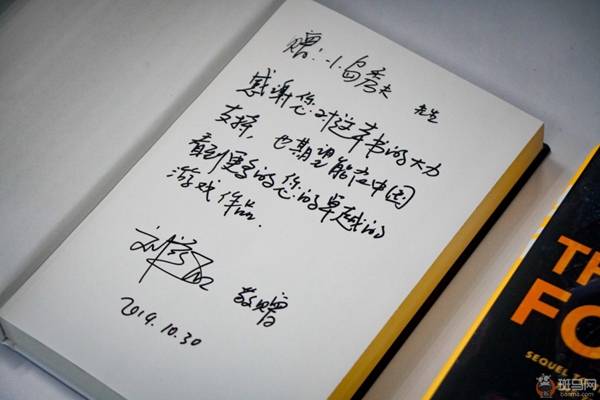 赠:小岛秀夫 先生
感谢您对这本书的大力
支持,也期望能在中国
看到更多的您的卓越的
游戏作品.
敬赠
2019.10.30
TH
FO
SEQUEL TO
斑马网